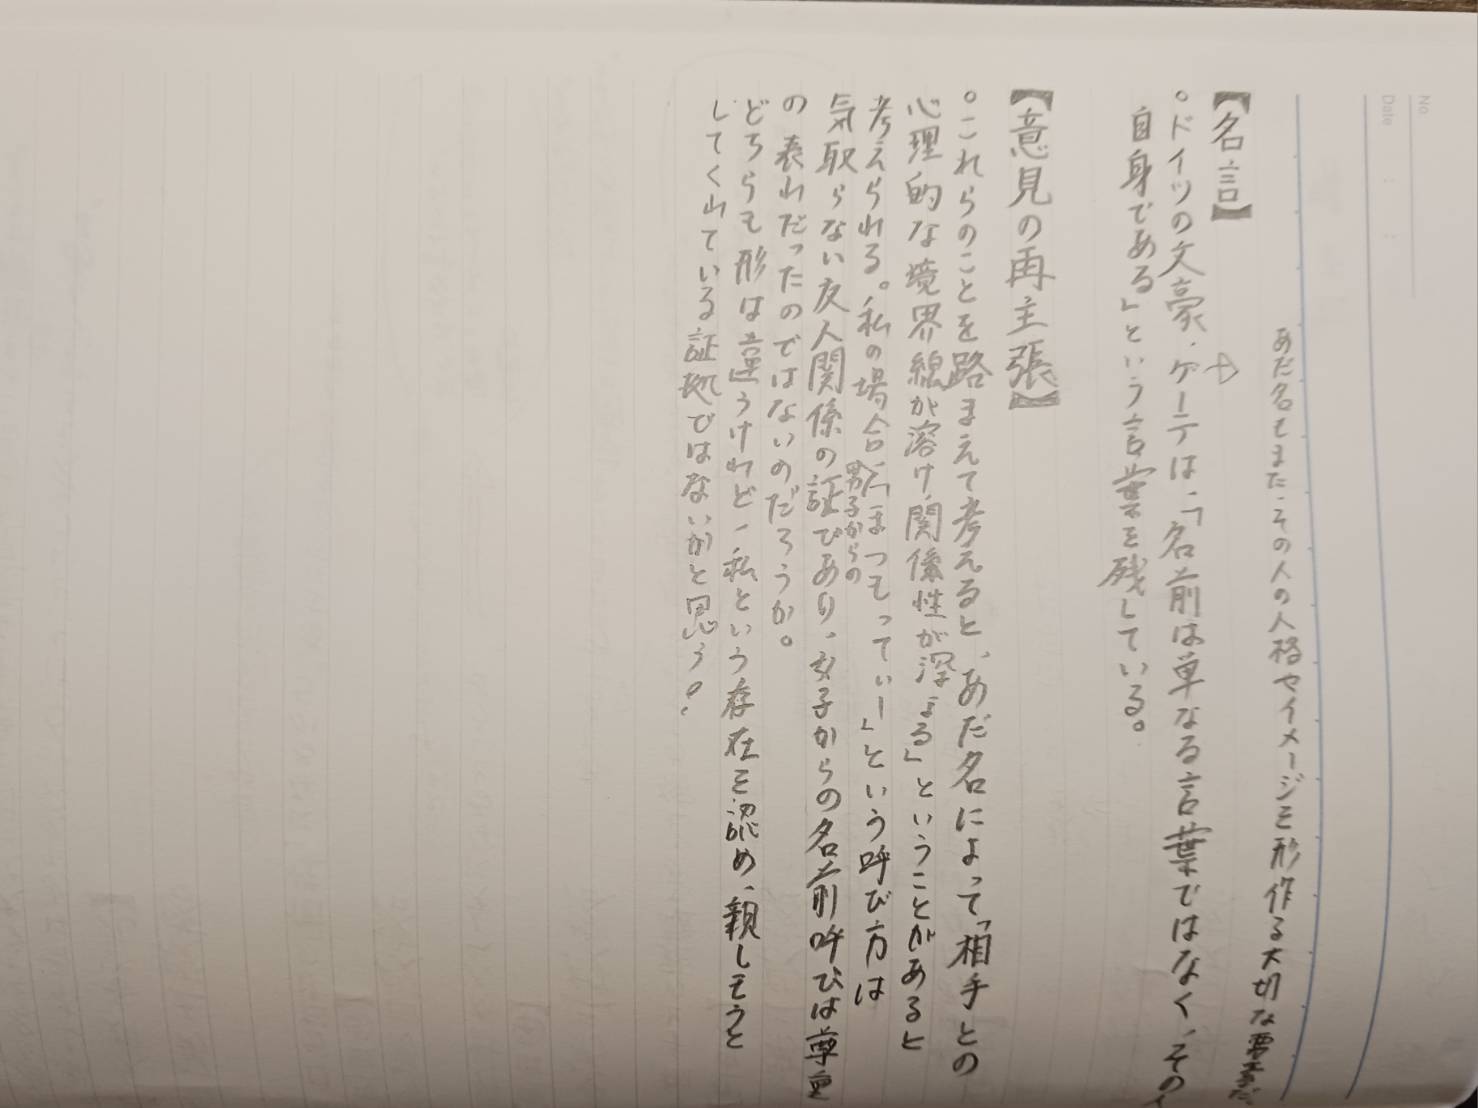 No
Date
あだ名もまた、その人の人格やイメージを形作る大切な要素だ
【名言】
。ドイツの文豪・ゲーテは、「名前は単なる言葉ではなく、その人
自身である」という言葉を残している。
【意見の再主張】
。これらのことを路まえて考えると、あだ名によって「相手との
心理的な境界線が溶け、関係性が深まる」ということがあると
考えられる。私の場合、「まつもってぃー」という呼び方は
男子からの
気取らない友人関係の証であり、女子からの名前呼びは尊重
の表れだったのではないのだろうか。
どちらも形は違うけれど、私という存在を認め、親しもうと
してくれている証拠ではないかと思う?